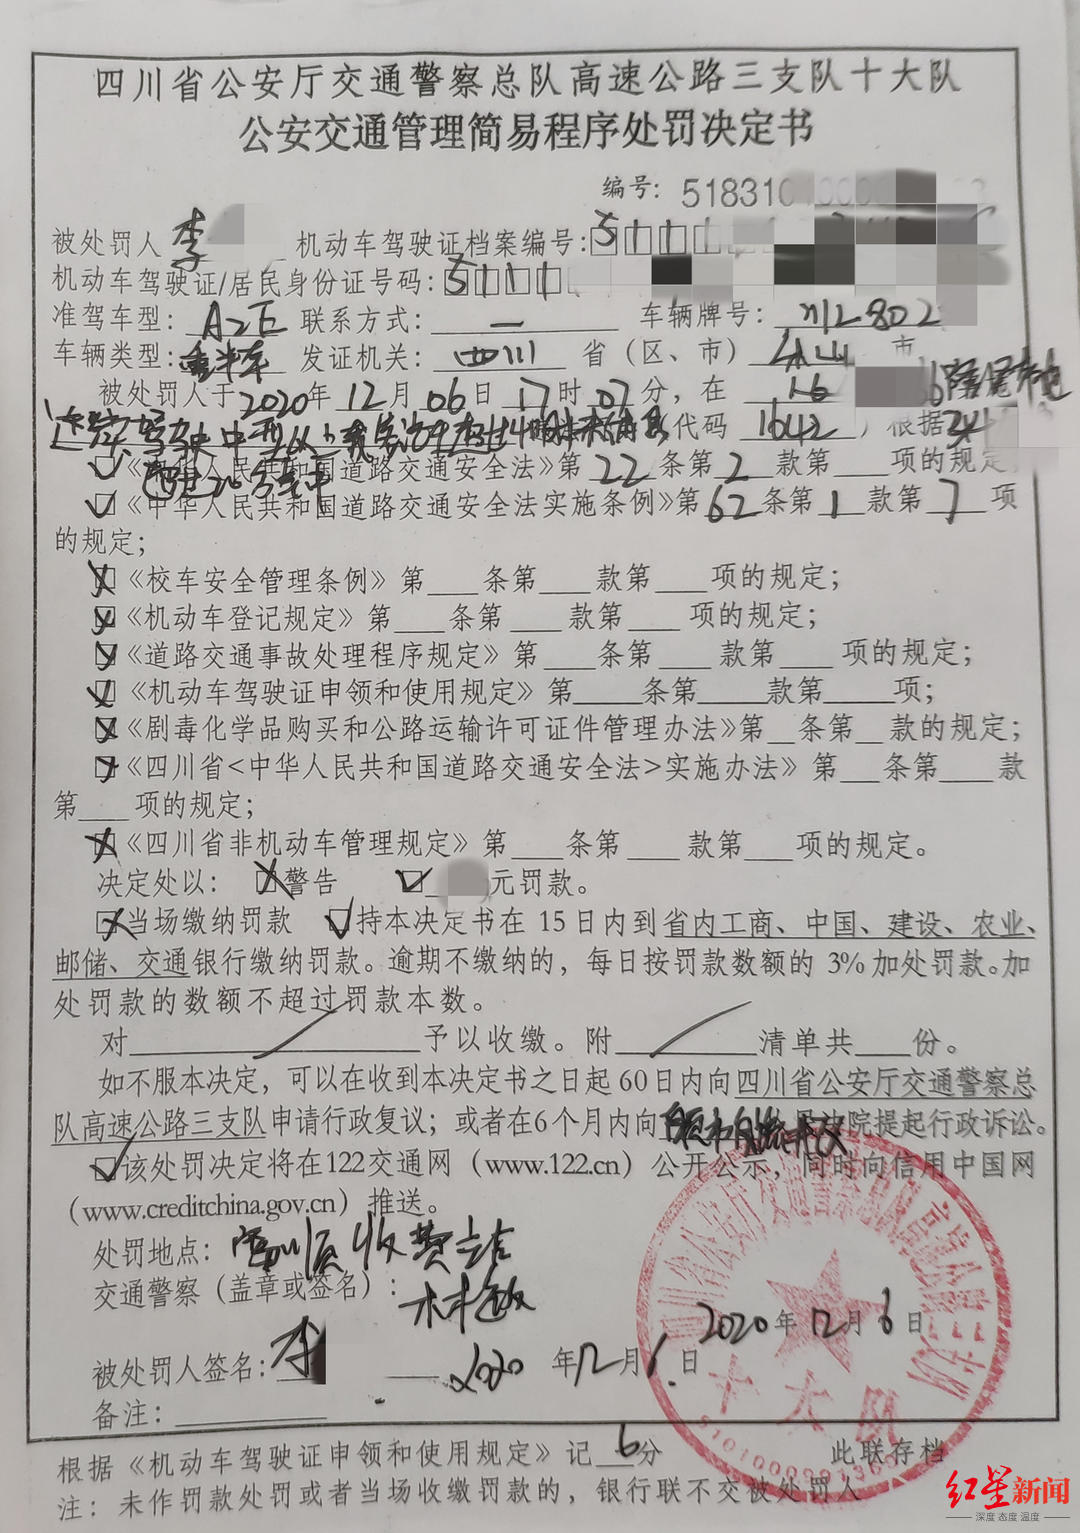 四川省公安厅交通警察总队高速公路三支队十大队
公安交通管理简易程序处罚决定书
编号：518310
被处罚人 李 机动车驾驶证档案编号：5111
机动车驾驶证/居民身份证号码：5111
准驾车型：A2E 联系方式：— 车辆牌号：川L802
车辆类型：重半车 发证机关：四川 省（区、市） 乐山 市
被处罚人于2020年12月06日17时07分，在 16
代码 1642），根据
《中华人民共和国道路交通安全法》第22条第2款第 项的规定；
《中华人民共和国道路交通安全法实施条例》第62条第1款第7项
的规定；
《校车安全管理条例》第 条第 款第 项的规定；
《机动车登记规定》第 条第 款第 项的规定；
《道路交通事故处理程序规定》第 条第 款第 项的规定；
《机动车驾驶证申领和使用规定》第 条第 款第 项；
《剧毒化学品购买和公路运输许可证件管理办法》第 条第 款的规定；
《四川省<中华人民共和国道路交通安全法>实施办法》第 条第 款
第 项的规定；
《四川省非机动车管理规定》第 条第 款第 项的规定。
决定处以： 警告 元罚款。
当场缴纳罚款 持本决定书在15日内到省内工商、中国、建设、农业、
邮储、交通银行缴纳罚款。逾期不缴纳的，每日按罚款数额的3%加处罚款。加
处罚款的数额不超过罚款本数。
对 予以收缴。附 清单共 份。
如不服本决定，可以在收到本决定书之日起60日内向四川省公安厅交通警察总
队高速公路三支队申请行政复议；或者在6个月内向 法院提起行政诉讼。
该处罚决定将在122交通网（www.122.cn）公开公示，同时向信用中国网
（www.creditchina.gov.cn）推送。
处罚地点： 收费站
交通警察（盖章或签名）：
2020年12月6日
被处罚人签名：李 2020年12月6日
备注：
十大队
根据《机动车驾驶证申领和使用规定》记6分 此联存档
注：未作罚款处罚或者当场收缴罚款的，银行联不交被处罚人
红星新闻
深度 态度 温度